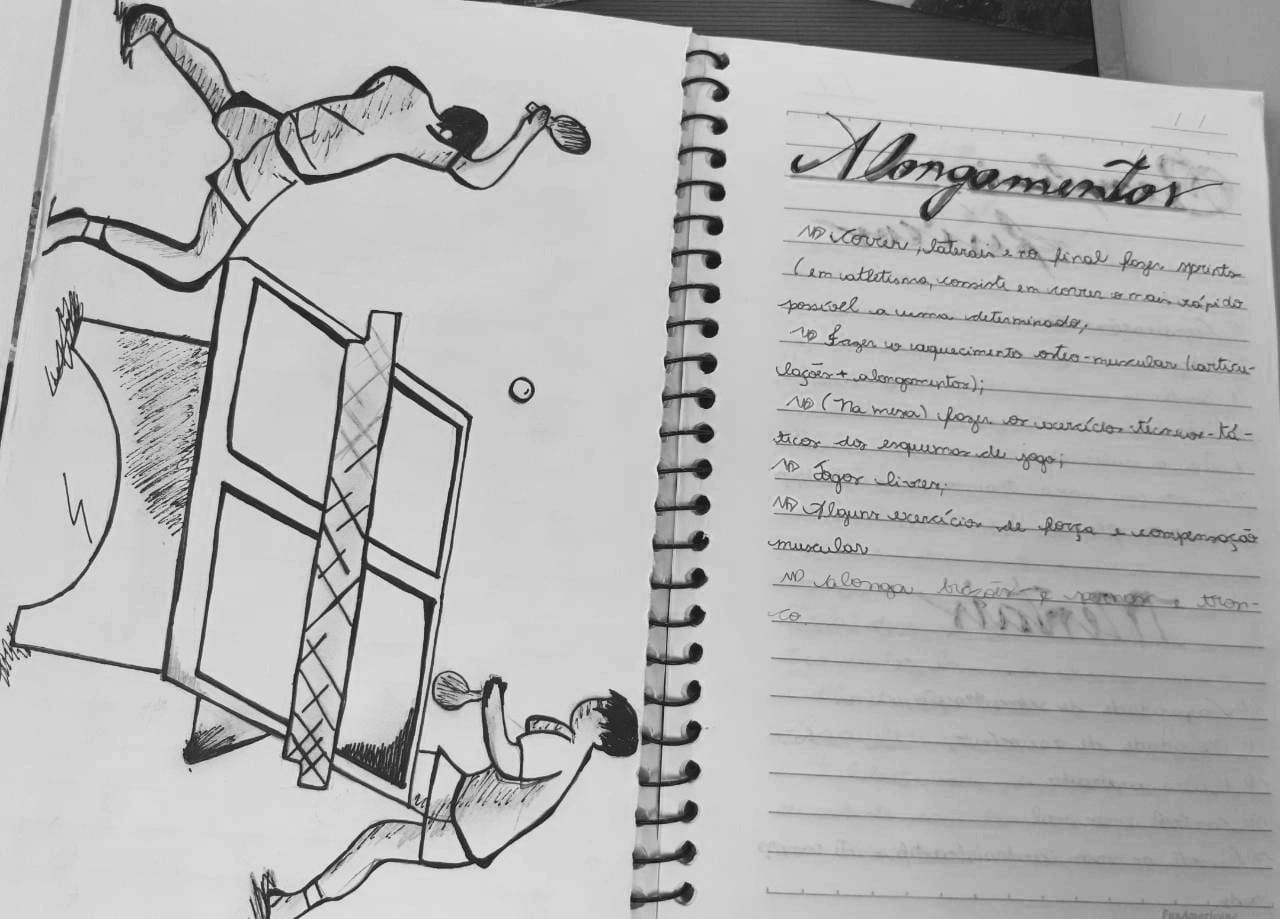 Alongamentos
Correr, laterais e no final fazer sprints
(em atletismo, consiste em correr o mais rápido
possível a uma determinado,
Fazer o aquecimento osteo-muscular (articu-
lações + alongamentos);
(Na mesa) fazer os exercícios técnicos-tá-
ticos dos esquemas de jogo;
Jogos livres;
Alguns exercícios de força e compensação
muscular
Alonga e tron-
co.